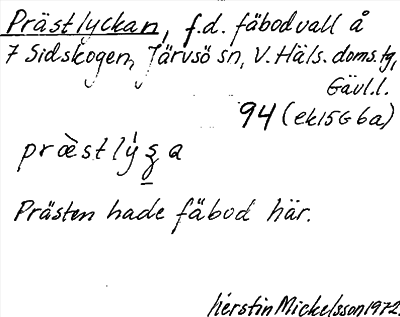 Prästlyckan, f.d. fäbodvall å
7 Sidskogen, Järvsö sn, V. Häls. doms.tg,
Gävl.l.
94 (ek15G6a)
Prästen hade fäbod här.
Kerstin Mickelsson 1972.